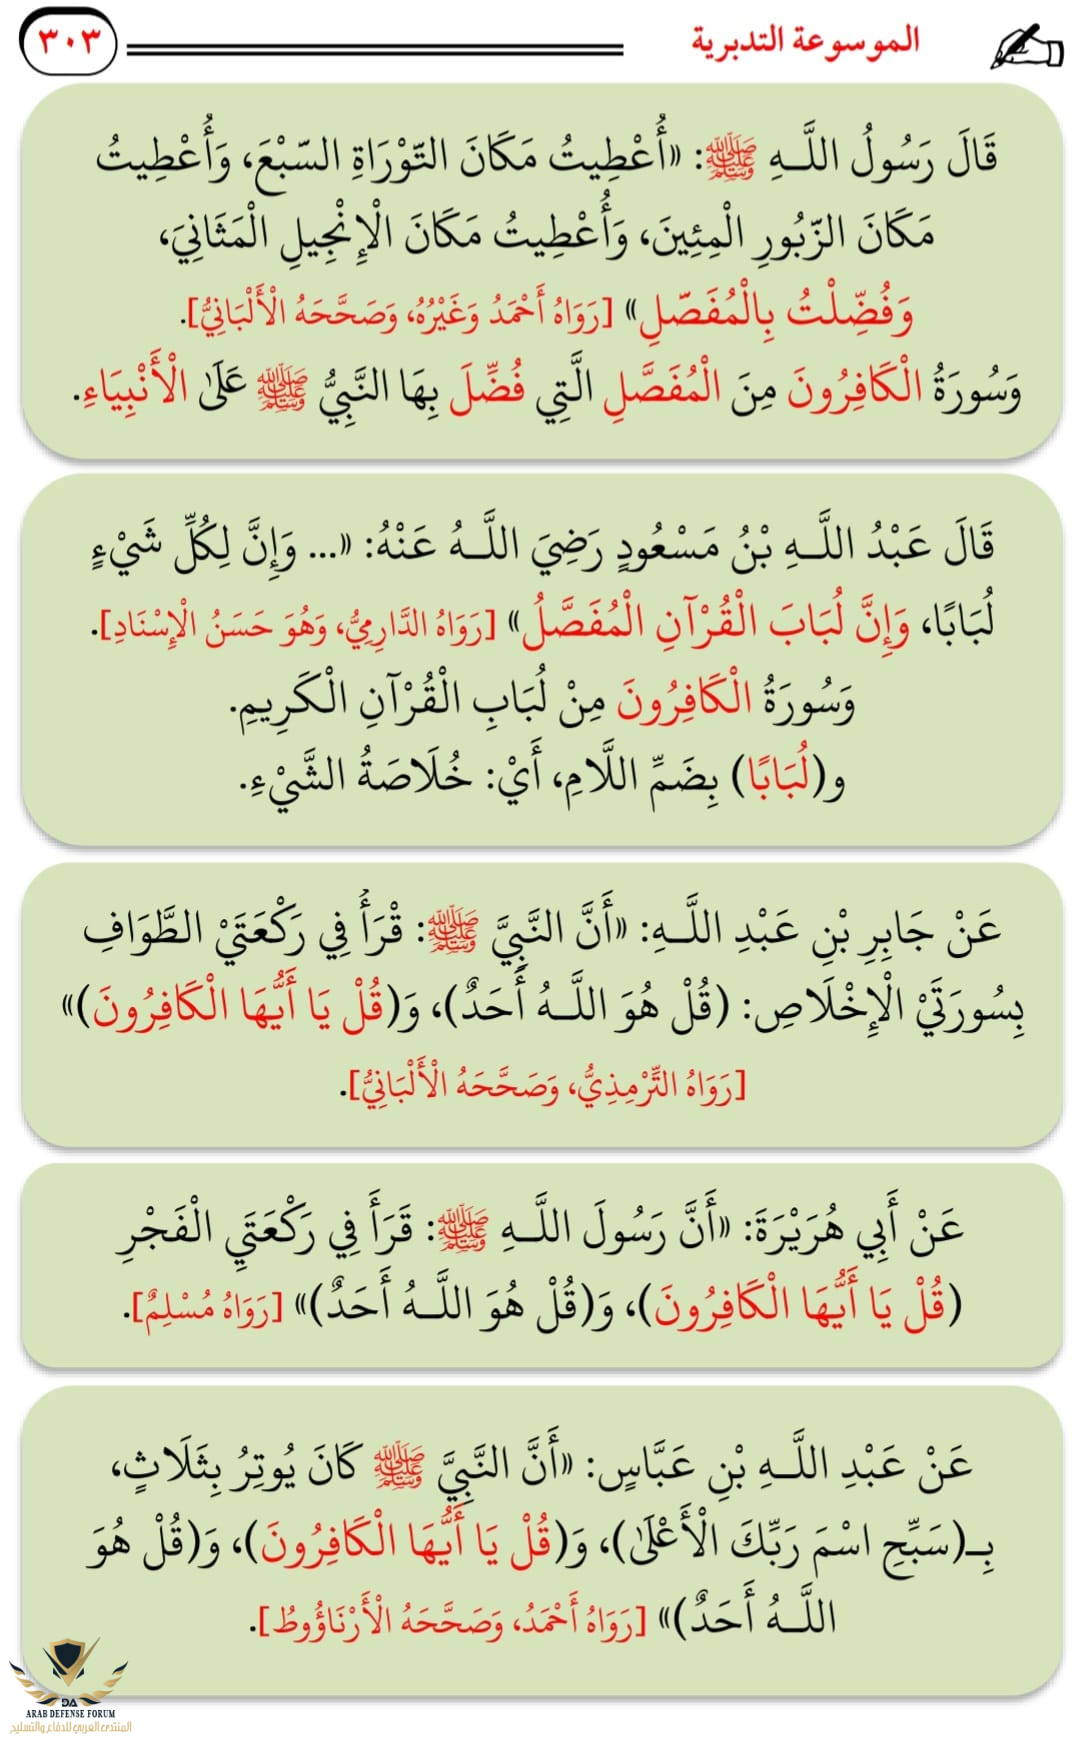 الموسوعة التدبرية
٣٠٣
قَالَ رَسُولُ اللَّـهِ ﷺ: «أُعْطِيتُ مَكَانَ التّوْرَاةِ السّبْعَ، وَأُعْطِيتُ
مَكَانَ الزّبُورِ الْمِئِينَ، وَأُعْطِيتُ مَكَانَ الْإِنْجِيلِ الْمَثَانِيَ،
وَفُضِّلْتُ بِالْمُفَصّلِ» [رَوَاهُ أَحْمَدُ وَغَيْرُهُ، وَصَحَّحَهُ الْأَلْبَانِيُّ].
وَسُورَةُ الْكَافِرُونَ مِنَ الْمُفَصَّلِ الَّتِي فُضِّلَ بِهَا النَّبِيُّ ﷺ عَلَى الْأَنْبِيَاءِ.
قَالَ عَبْدُ اللَّـهِ بْنُ مَسْعُودٍ رَضِيَ اللَّـهُ عَنْهُ: «... وَإِنَّ لِكُلِّ شَيْءٍ
لُبَابًا، وَإِنَّ لُبَابَ الْقُرْآنِ الْمُفَصَّلُ» [رَوَاهُ الدَّارِمِيُّ، وَهُوَ حَسَنُ الْإِسْنَادِ].
وَسُورَةُ الْكَافِرُونَ مِنْ لُبَابِ الْقُرْآنِ الْكَرِيمِ.
و(لُبَابًا) بِضَمِّ اللَّامِ، أَيْ: خُلَاصَةُ الشَّيْءِ.
عَنْ جَابِرِ بْنِ عَبْدِ اللَّـهِ: «أَنَّ النَّبِيَّ ﷺ: قْرَأُ فِي رَكْعَتَيْ الطَّوَافِ
بِسُورَتَيْ الْإِخْلَاصِ: (قُلْ هُوَ اللَّـهُ أَحَدٌ)، وَ(قُلْ يَا أَيُّهَا الْكَافِرُونَ)»
[رَوَاهُ التِّرْمِذِيُّ، وَصَحَّحَهُ الْأَلْبَانِيُّ].
عَنْ أَبِي هُرَيْرَةَ: «أَنَّ رَسُولَ اللَّـهِ ﷺ: قَرَأَ فِي رَكْعَتَيِ الْفَجْرِ
(قُلْ يَا أَيُّهَا الْكَافِرُونَ)، وَ(قُلْ هُوَ اللَّـهُ أَحَدٌ)» [رَوَاهُ مُسْلِمٌ].
عَنْ عَبْدِ اللَّـهِ بْنِ عَبَّاسٍ: «أَنَّ النَّبِيَّ ﷺ كَانَ يُوتِرُ بِثَلَاثٍ،
بِـ(سَبِّحِ اسْمَ رَبِّكَ الْأَعْلَى)، وَ(قُلْ يَا أَيُّهَا الْكَافِرُونَ)، وَ(قُلْ هُوَ
اللَّـهُ أَحَدٌ)» [رَوَاهُ أَحْمَدُ، وَصَحَّحَهُ الْأَرْنَاؤُوطُ].
DA
ARAB DEFENSE FORUM
المنتدى العربي للدفاع والتسليح